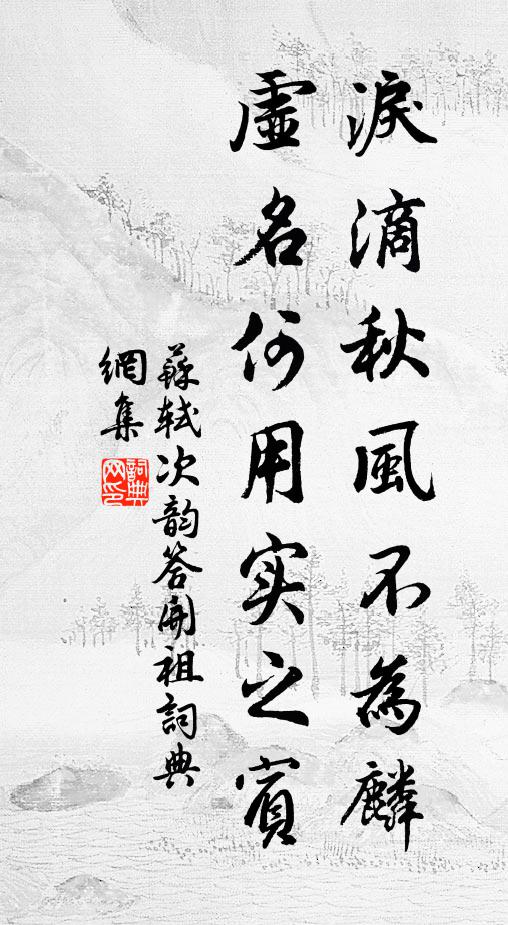 淚滴秋風不為麟
虛名何用实之賓
蘇轼次韵答開祖詞典
網集
詞典
网印